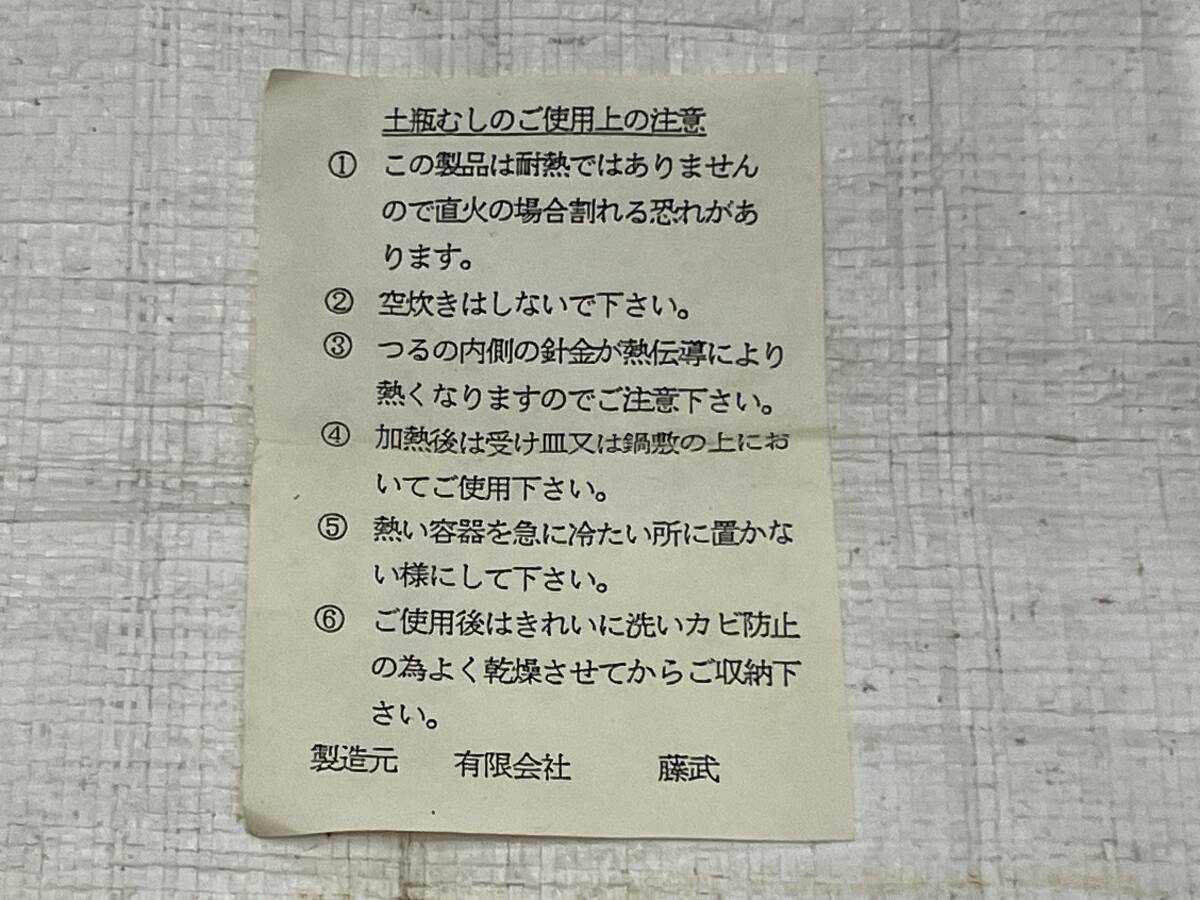 土瓶むしのご使用上の注意
① この製品は耐熱ではありません
ので直火の場合割れる恐れがあ
ります。
② 空炊きはしないで下さい。
③ つるの内側の針金が熱伝導により
熱くなりますのでご注意下さい。
④ 加熱後は受け皿又は鍋敷の上にお
いてご使用下さい。
⑤ 熱い容器を急に冷たい所に置かな
い様にして下さい。
⑥ ご使用後はきれいに洗いカビ防止
の為よく乾燥させてからご収納下
さい。
製造元 有限会社 藤武